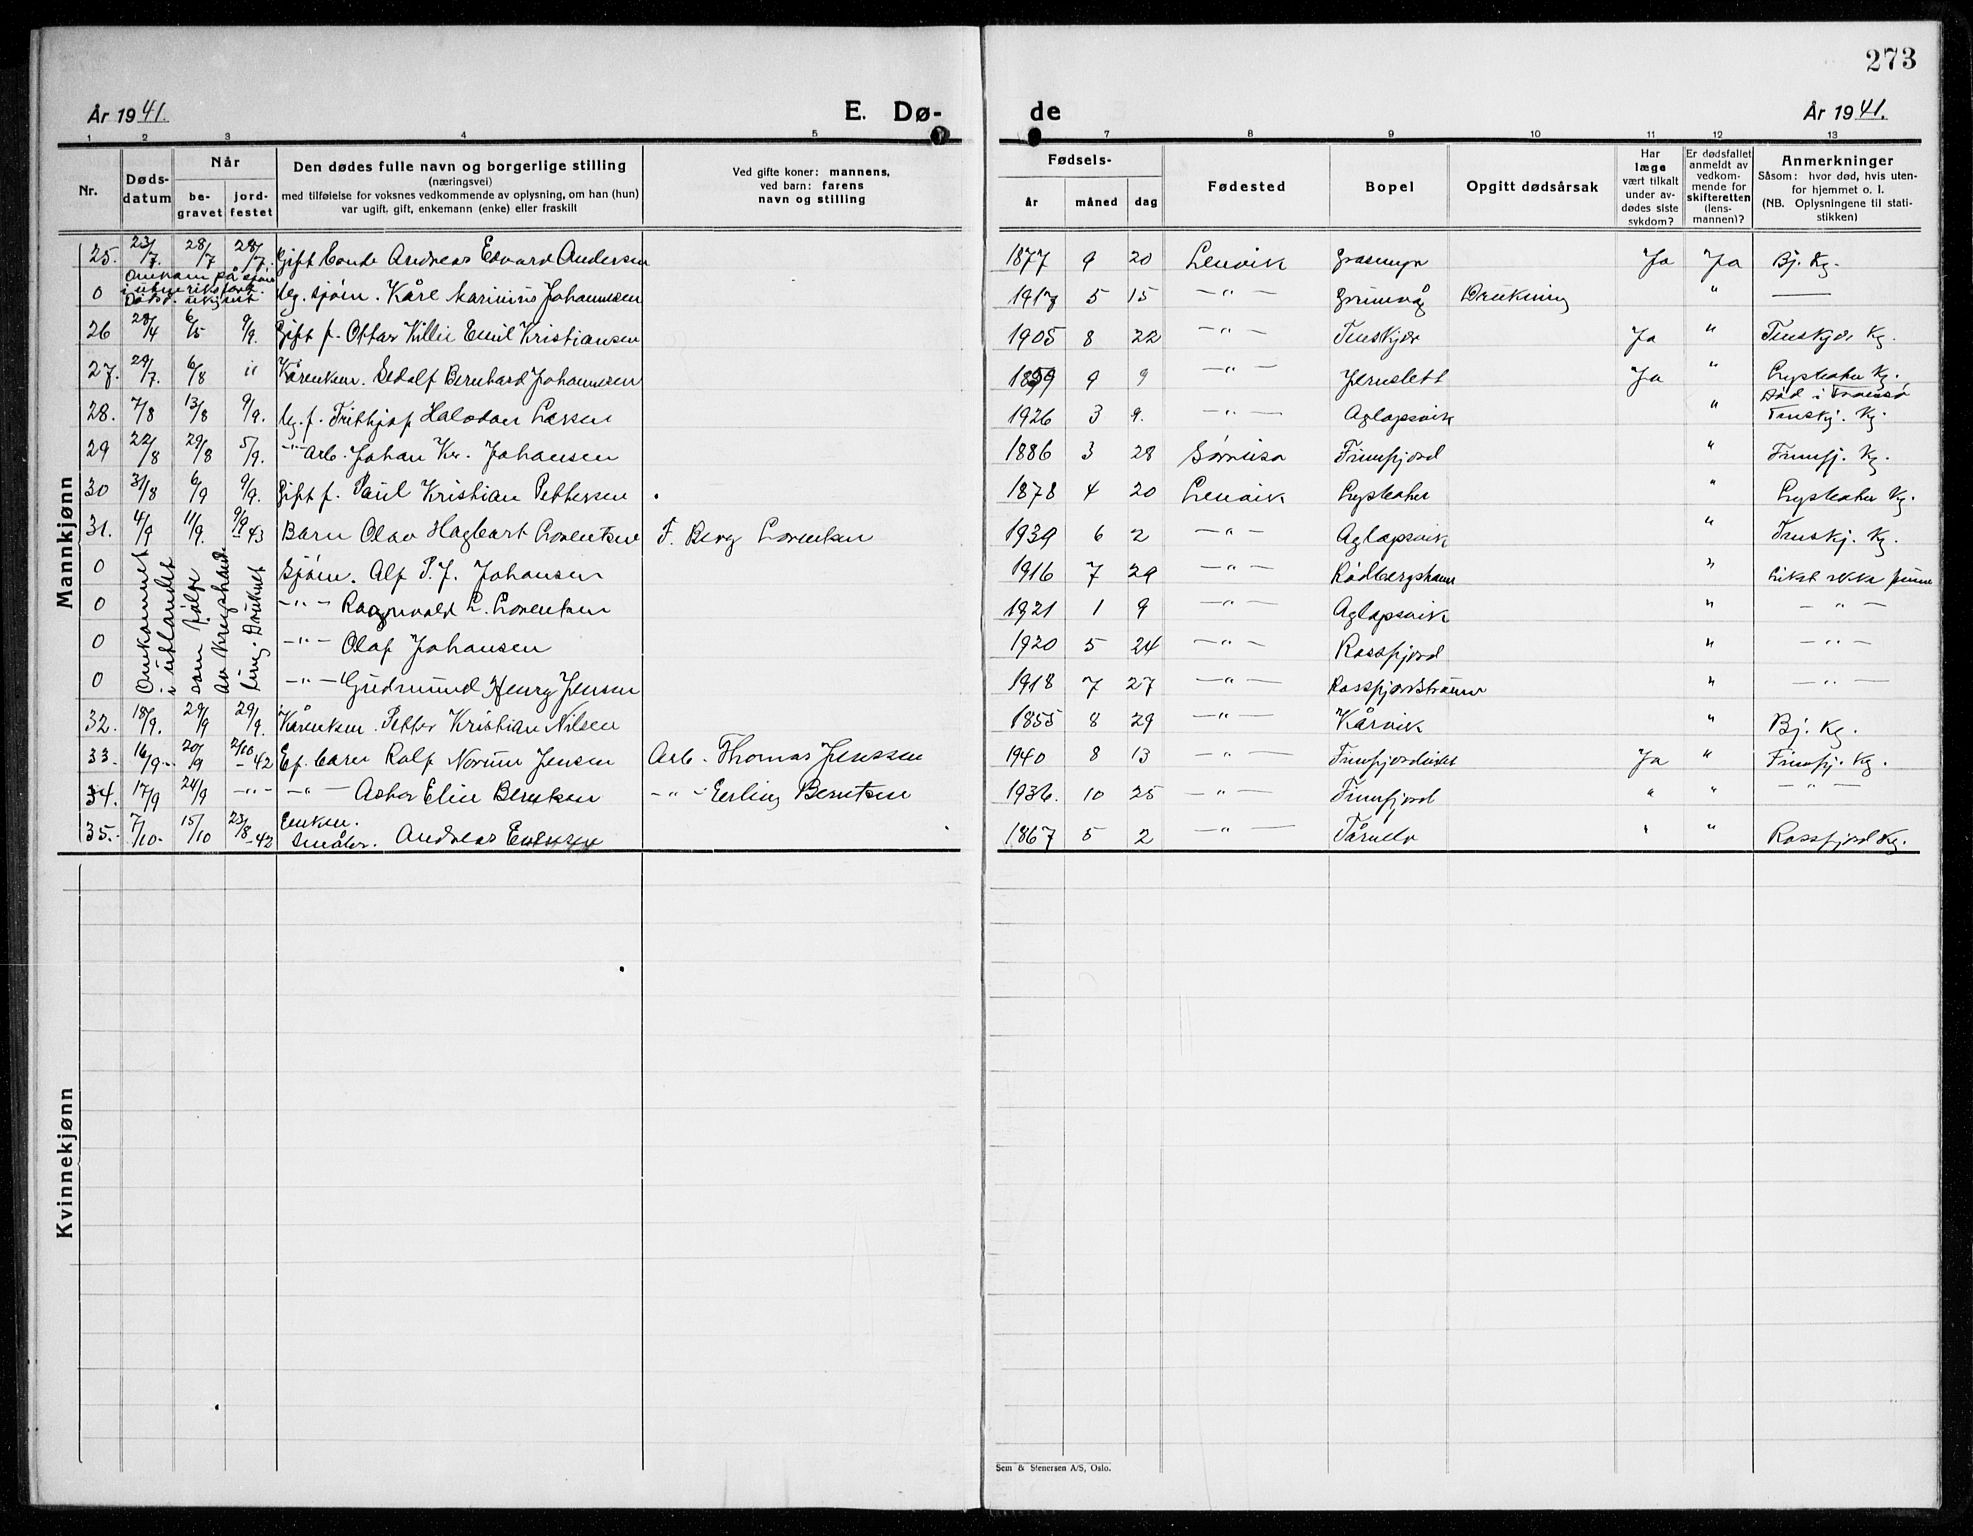 273
År 1941.
E. Dø-
de
År 1941.
1 2 3 4 5 7 8 9 10 11 12 13
Nr.
Døds-
datum
Når
be-
gravet
jord-
festet
Den dødes fulle navn og borgerlige stilling
(næringsvei)
med tilføielse for voksnes vedkommende av oplysning, om han (hun)
var ugift, gift, enkemann (enke) eller fraskilt
Ved gifte koner: mannens,
ved barn: farens
navn og stilling
Fødsels-
år måned dag
Fødested
Bopel
Opgitt dødsårsak
Har
læge
vært tilkalt
under av-
dødes siste
sykdom?
Er dødsfallet
anmeldt av
vedkom-
mende for
skifteretten
(lens-
mannen)?
Anmerkninger
Såsom: hvor død, hvis uten-
for hjemmet o. l.
(NB. Oplysningene til stati-
stikken)
Mannkjønn
25. 23/7. 28/7 28/7. Gift bonde Andreas Edvard Andersen 1877 9 20 Lenvik Grasmyr Ja Ja Bj. Kg.
Omkom på sjøen
i utenriksfart.
Dødsd. ukjent
0 Ug. sjøm. Kåre Marinius Johannesen 1917 5 15 —"— Grunnvåg Drukning " —
26 28/4 6/5 9/9. Gift f. Ottar Emil Kristiansen 1905 8 22 —"— Finskjær Ja " Finskjær Kg.
27. 29/7. 6/8 " Kårenkem. Sedolf Bernhard Johannesen 1859 9 9 —"— Jernslett Ja " Lysbotn Kg.
28. 7/8 13/8 9/9. Ug. f. Frithjof Halvdan Larsen 1926 3 9. —"— Aglapsvik " Død i Tromsø
Finskj. Kg.
29 22/8 29/8 5/9. —"— Arb. Johan Kr. Johansen 1886 3 28 Sørreisa Finnfjord " Finnfj. Kg.
30 31/8 6/9 9/9. Gift f. Paul Kristian Pettersen 1878 4 20 Lenvik Lysbotn " Lysbotn Kg.
31. 4/9 11/9. 9/9 43 Barn Olav Hagbart Lorentsen F. Berg Lorentsen 1939 6 2 —"— Aglapsvik " Finskj. Kg.
Omkommet
i utlandet
som følge
av krigshand-
ling. Druknet
0 Sjøm. Alf P. J. Johansen 1916 7 29 —"— Rødbergshamn " Liket ikke funne
0 —"— Ragnvald L. Lorentsen 1921 1 9 —"— Aglapsvik " —"—
0 —"— Olaf Johansen 1920 5 24 —"— Rossfjord " —"—
0 —"— Gudmund Henry Jensen 1918 7 27 —"— Rossfjordstraumen " —"—
32. 18/9. 29/9 29/9. Kårenkem. Petter Kristian Nilsen 1855 8 29 —"— Kårvik " Bj. Kg.
33. 16/9 20/9 2/10 - 42 Ef. barn Rolf Norum Jensen Arb. Thomas Jenssen 1940 8 13 —"— Finnfjordeidet Ja " Finnfj. Kg.
34. 17/9 24/9 —"— —"— Asbor Elin Berntsen —"— Erling Berntsen 1936. 10 25 —"— Finnfjord " " —"—
35. 7/10. 15/10 23/8 - 42 Enkem.
Småbr. Andreas 1867 5 2 —"— Tårnelv " " Rossfjord Kg.
Kvinnekjønn
Sem & Stenersen A/S, Oslo.